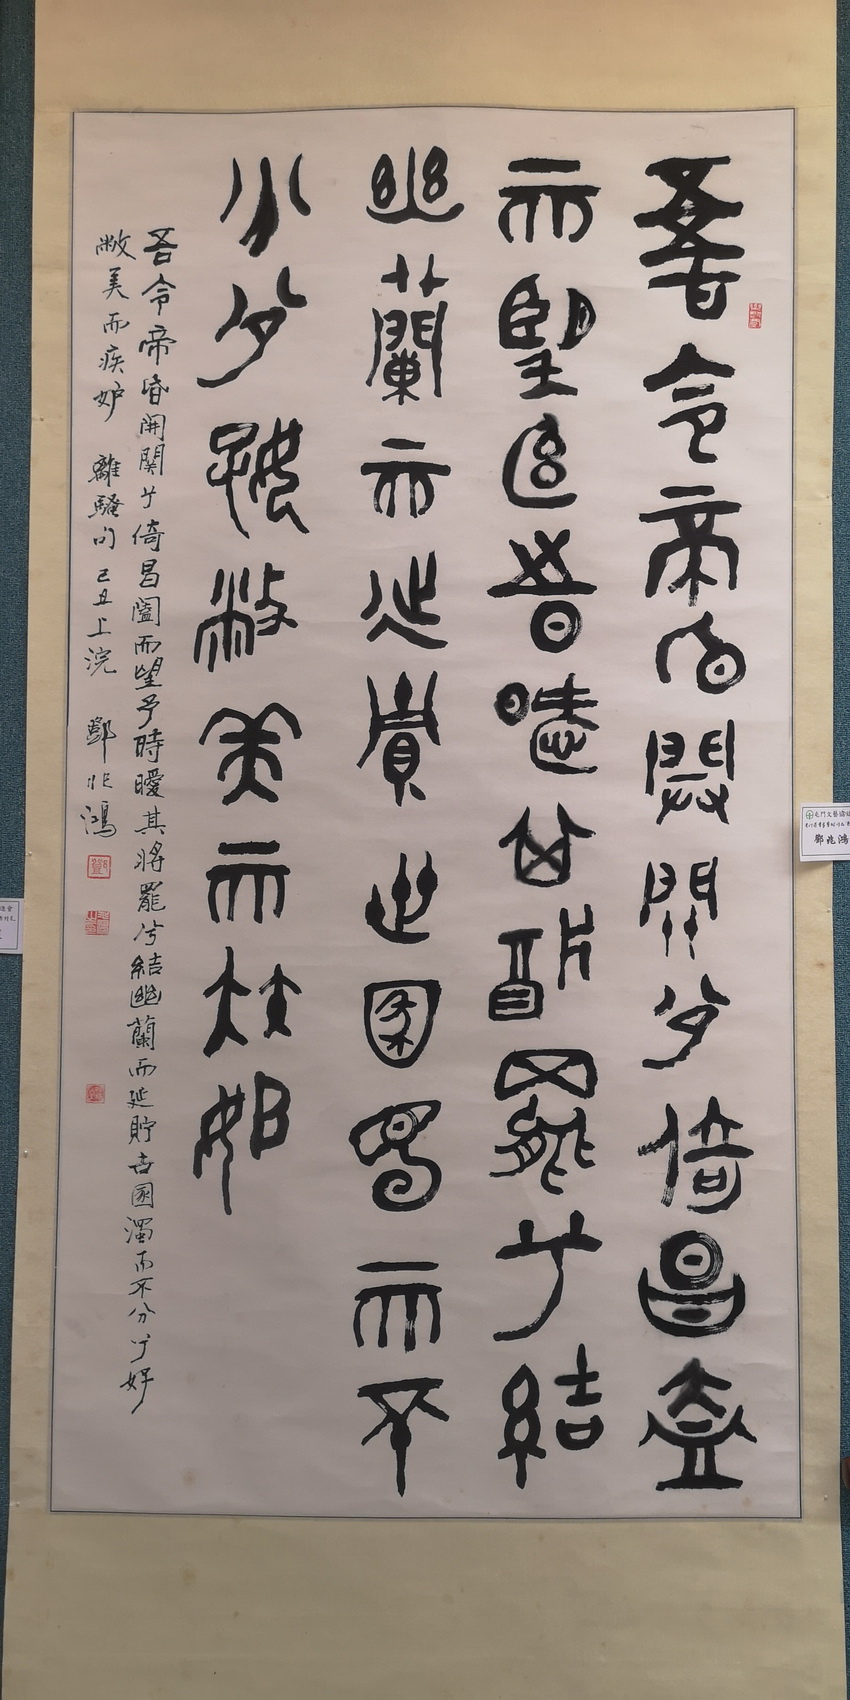 吾令帝昏開關兮倚昌盍
而望追時曖其將罷兮結
幽蘭而延貯世國濁而不
分兮好蔽美而疾妒
吾令帝昏開關兮倚昌闔而望予時曖其將罷兮結幽蘭而延貯世國濁而不分兮好
敝美而疾妒 離騷句 己丑上浣 鄧兆鴻
屯門文藝協
鄧兆鴻